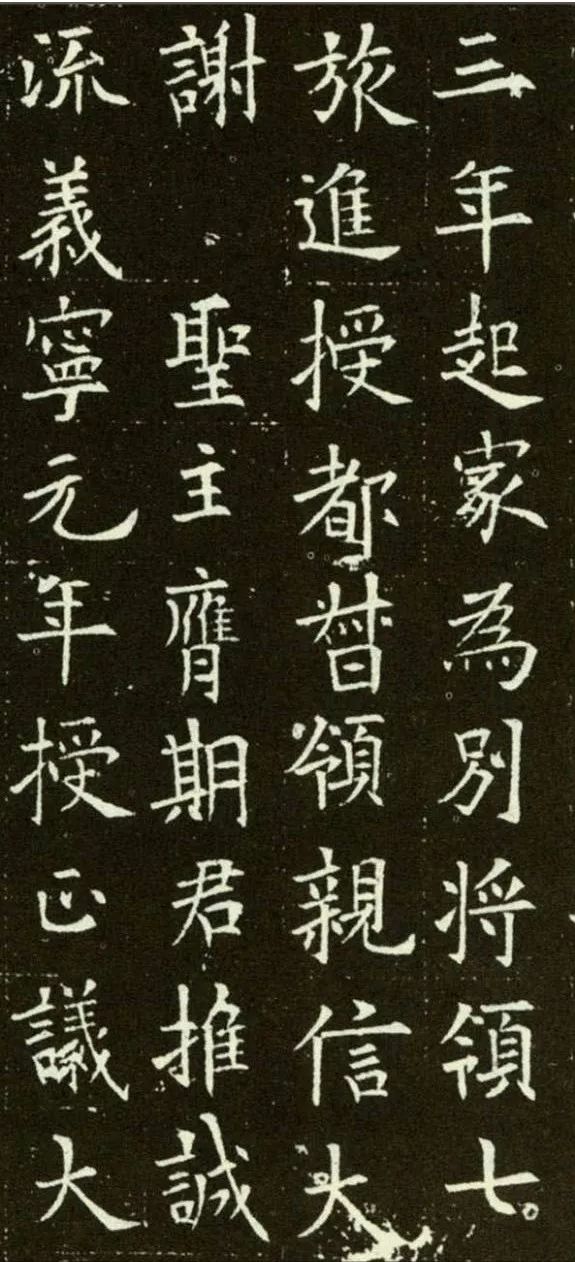 三年起家為別将領七
旅進授都督領親信大
謝聖主膺期君推誠
流義寧元年授正議大